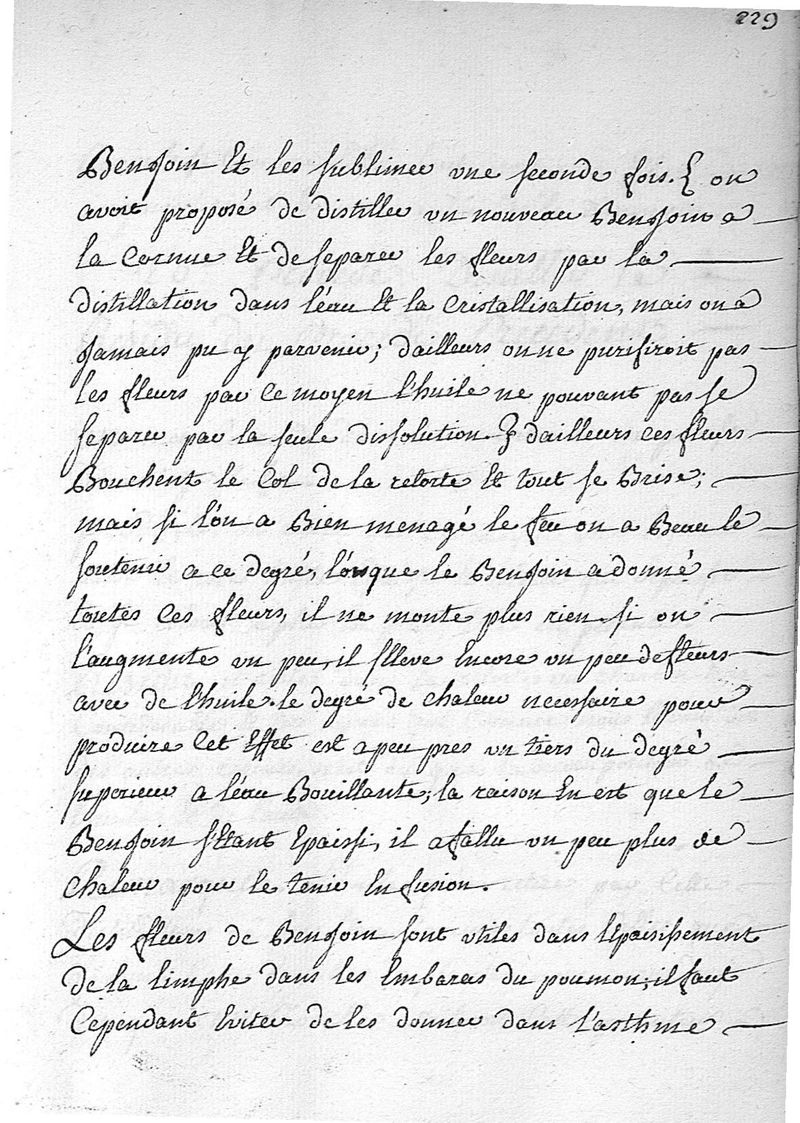 229
Benjoin Et les sublimer une seconde fois. on
avoit proposé de distiller un nouveau Benjoin a
la Cornue Et de separer les fleurs par la
distillation dans l'éau Et la Cristallisation, mais on a
Jamais pu y parvenir; dailleurs on ne purifiroit pas
les fleurs par ce moyen l'huile ne pouvant pas se
separer par la seule dissolution. dailleurs ces fleurs
Bouchent le Col de la retorte Et tout se Brise;
mais si l'on a Bien menagé le feu on a Beau le
soutenir a ce degré, lorsque le Benjoin a donné
toutes ces fleurs, il ne monte plus rien. si on
l'augmente un peu, il s'leve Encore un peu de fleurs
avec de l'huile. le degré de chaleur necessaire pour
produire Cet Effet est a peu pres un tiers du degré
superieur a l'éau Bouillante; la raison En est que le
Benjoin s'Etant Epaissi, il a fallu un peu plus de
Chaleur pour le tenir En fusion.
Les fleurs de Benjoin sont utiles dans l'Epaisissement
de la limphe dans les Embaras du poumon; il faut
Cependant Eviter de les donner dans l'asthme